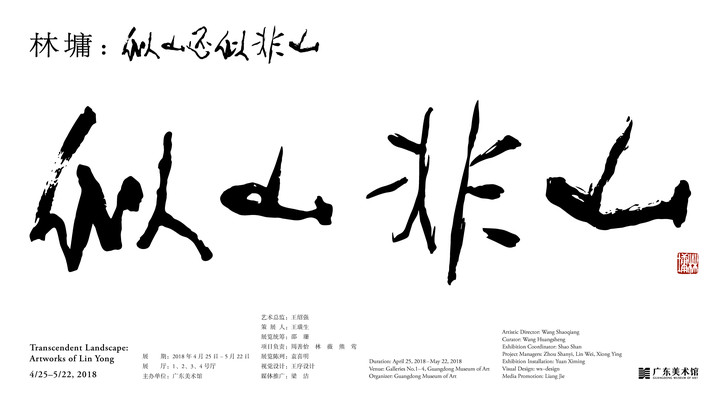 林墉：似山还似非山
似山非山
Transcendent Landscape:
Artworks of Lin Yong
4/25–5/22, 2018
展 期：2018 年 4 月 25 日 – 5 月 22 日
展 厅：1、2、3、4 号厅
主办单位：广东美术馆
艺术总监：王绍强
策 展 人：王璜生
展览统筹：邵 珊
项目负责：周善怡 林 薇 熊 莺
展览陈列：袁喜明
视觉设计：王序设计
媒体推广：梁 洁
Duration: April 25, 2018 - May 22, 2018
Venue: Galleries No.1–4, Guangdong Museum of Art
Organiser: Guangdong Museum of Art
Artistic Director: Wang Shaoqiang
Curator: Wang Huangsheng
Exhibition Coordinator: Shao Shan
Project Managers: Zhou Shanyi, Lin Wei, Xiong Ying
Exhibition Installation: Yuan Ximing
Visual Design: wx-design
Media Promotion: Liang Jie
广东美术馆
GUANGDONG MUSEUM OF ART